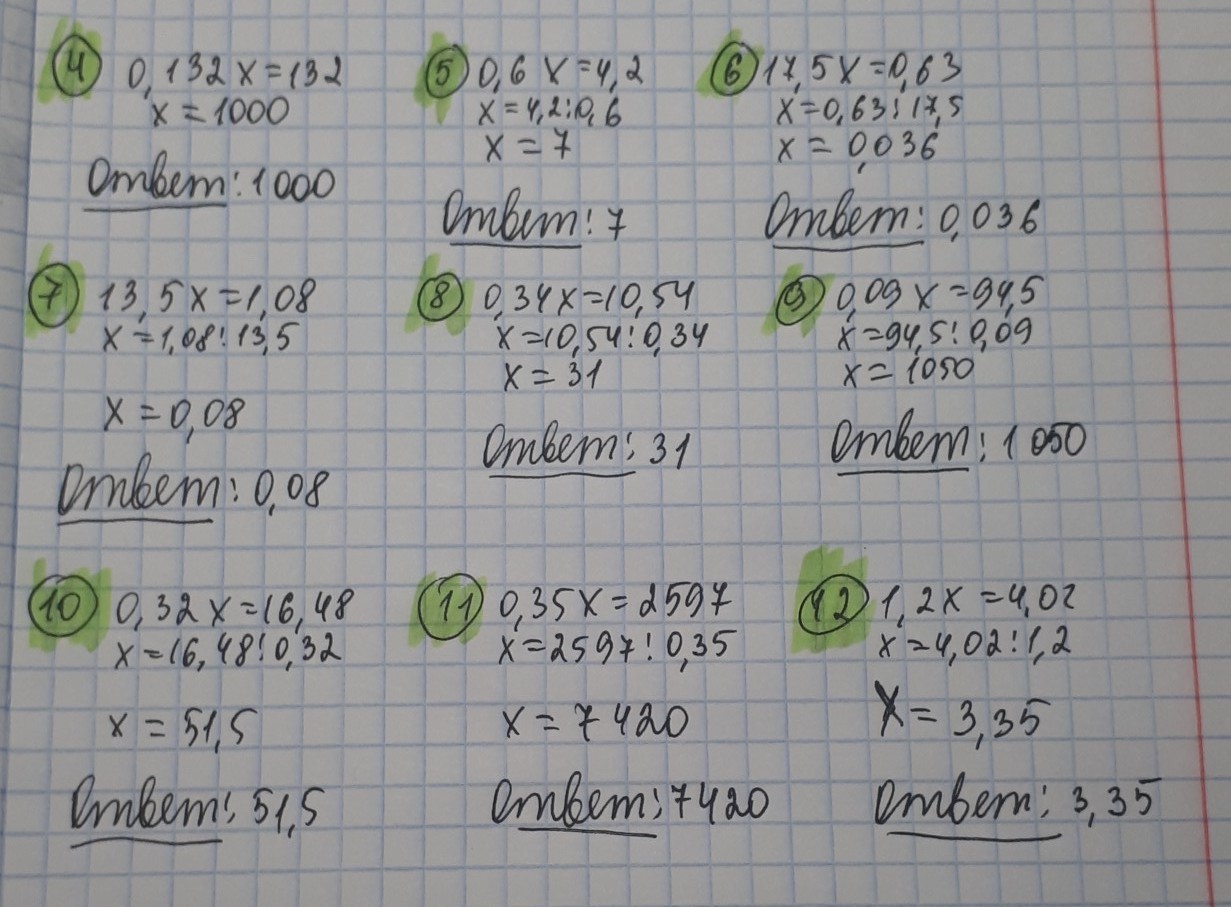 4 0,132x=132
x=1000
Ответ: 1000
5 0,6x=4,2
x=4,2:0,6
x=7
Ответ: 7
6 17,5x=0,63
x=0,63:17,5
x=0,036
Ответ: 0,036
7 13,5x=1,08
x=1,08:13,5
x=0,08
Ответ: 0,08
8 0,34x=10,54
x=10,54:0,34
x=31
Ответ: 31
9 0,09x=94,5
x=94,5:0,09
x=1050
Ответ: 1050
10 0,32x=16,48
x=16,48:0,32
x=51,5
Ответ: 51,5
11 0,35x=2597
x=2597:0,35
x=7420
Ответ: 7420
12 1,2x=4,02
x=4,02:1,2
x=3,35
Ответ: 3,35